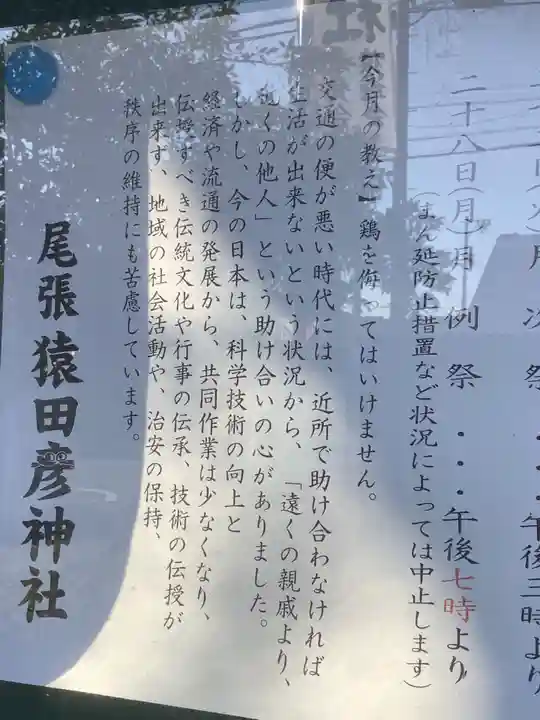 次祭・・・午後三時より
二十八日(月)月例祭・・・午後七時より
(まん延防止措置など状況によっては中止します)
【今月の教え】鶏を侮ってはいけません。
交通の便が悪い時代には、近所で助け合わなければ
生活が出来ないという状況から、「遠くの親戚より、
近くの他人」という助け合いの心がありました。
しかし、今の日本は、科学技術の向上と
経済や流通の発展から、共同作業は少なくなり、
伝授すべき伝統文化や行事の伝承、技術の伝授が
出来ず、地域の社会活動や、治安の保持、
秩序の維持にも苦慮しています。
尾張猿田彦神社
社